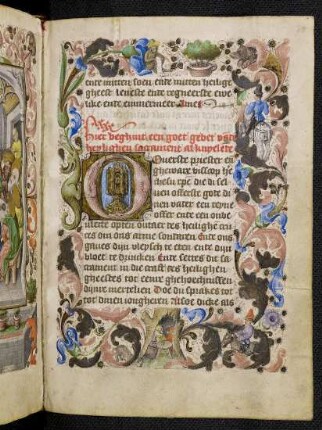 ende mitten soen ende mitten heilige
gheest leueste ende regneerste ewe
like ende emmermeer Amen
Hier beghint een goet gebet vā
heylighen sacrament alsmen
Ouerste priester en
ghewaer bisscop ihe
christ die di sel
uen offerste gode di
nen vader een reyne
offer ende een onbe
ulecte opten outaer des heilighe cru
ces om ons arme sondaren Ende ons
ghaues dijn vleysch te eten ende dijn
bloet te drincken Ende settes dit sa
crament in die cracht des heilighen
gheestes tot eenre ghehoechnissen
dijnre Doe du sprakes tot
tot dinen iongheren Alsoe dicke als